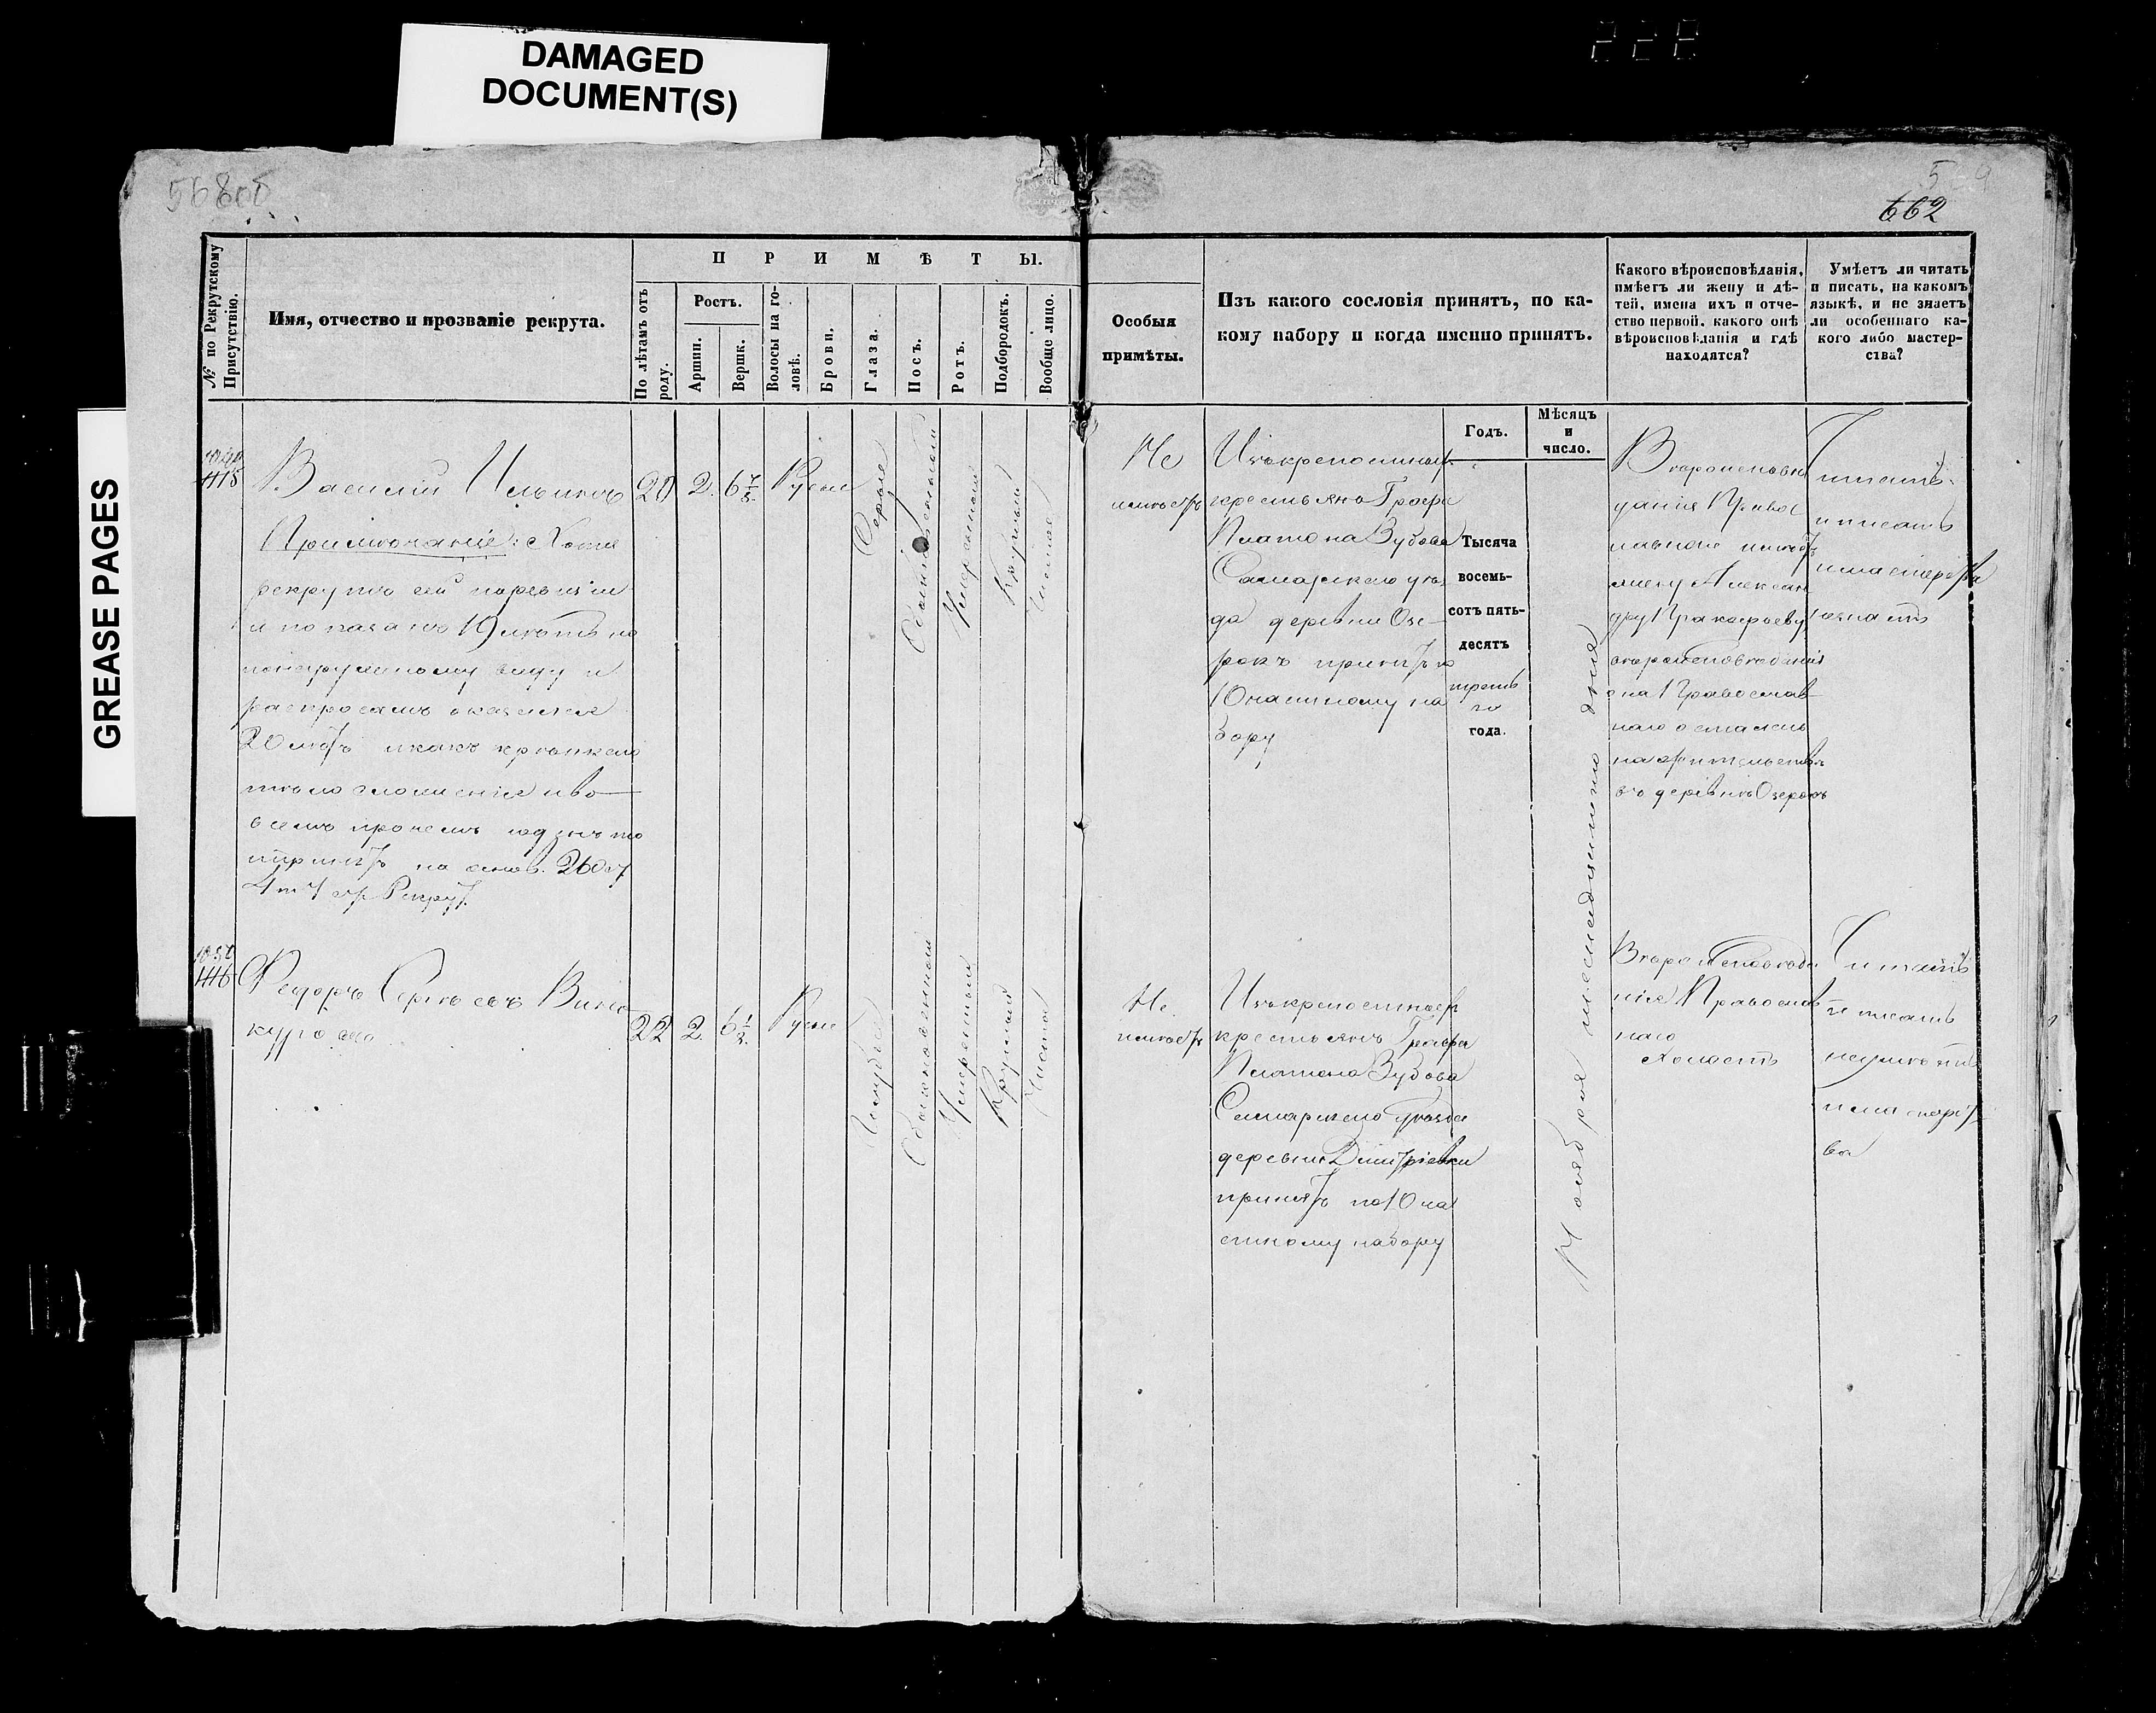 DAMAGED
DOCUMENT(S)
GREASE PAGES
662
№ по Рекрутскому
Присутствію.
Имя, отчество и прозваніе рекрута.
ПРИМѢТЫ.
По лѣтамъ отъ
роду.
Ростъ.
Аршин.
Вершк.
Волосы на го-
ловѣ.
Брови.
Глаза.
Носъ.
Ротъ.
Подбородокъ.
Вообще лицо.
Особыя
примѣты.
Изъ какого сословія принятъ, по ка-
кому набору и когда именно принятъ.
Какого вѣроисповѣданія,
имѣетъ ли жену и дѣ-
тей, имена ихъ и отче-
ство первой, какого онѣ
вѣроисповѣданія и гдѣ
находятся?
Умѣетъ ли читать
и писать, на какомъ
языкѣ, и не знаетъ
ли особеннаго ка-
кого либо мастер-
ства?
Годъ.
Мѣсяцъ
и
число.
1115
Василій Ильинъ
Примѣчаніе: Хотя
рекрутъ сей по ревизіи
и показанъ 19 лѣтъ но
по наружному виду и
распросамъ оказался
20 лѣтъ и какъ крѣпкаго
тѣлосложенія и во
всемъ прочемъ годенъ то
принятъ на основ. 260 ст
4 т Уст Рекрут.
20
2.
6 7/8
Русые
Сѣрые
Обыкновенный
Умѣренный
Круглый
Чистое
Не
имѣетъ
Изъ крепостных
крестьянъ Графа
Платона Зубова
Самарскаго уѣз
да деревни Озе-
рокъ принятъ по
10 частному на
бору
Тысяча
восемь-
сотъ пять-
десятъ
третья
го
года.
Ноября шестнадцатаго дня
Вѣроисповѣ
данія Правос
лавнаго имѣетъ
жену Алексан
дру Пракофьеву
вѣроисповѣданія
она Православ
наго осталась
на жительствѣ
въ деревнѣ Озерокъ
Читать
и писать
и мастерства
незнаетъ
1116
Федоръ Сергѣевъ Вино
куровъ
22
2.
6 1/2.
Русые
Голубые
Обыкновенный
Умѣренный
Круглый
Чистое
Не
имѣетъ
Изъ крепостных
крестьянъ Графа
Платона Зубова
Самарскаго уѣзда
деревни Дмитріевки
принятъ по 10 ча
стному набору
Вѣроисповѣда
нія Православ
наго
Холостъ
Читать
и писать
неумѣетъ
и мастерст
ва